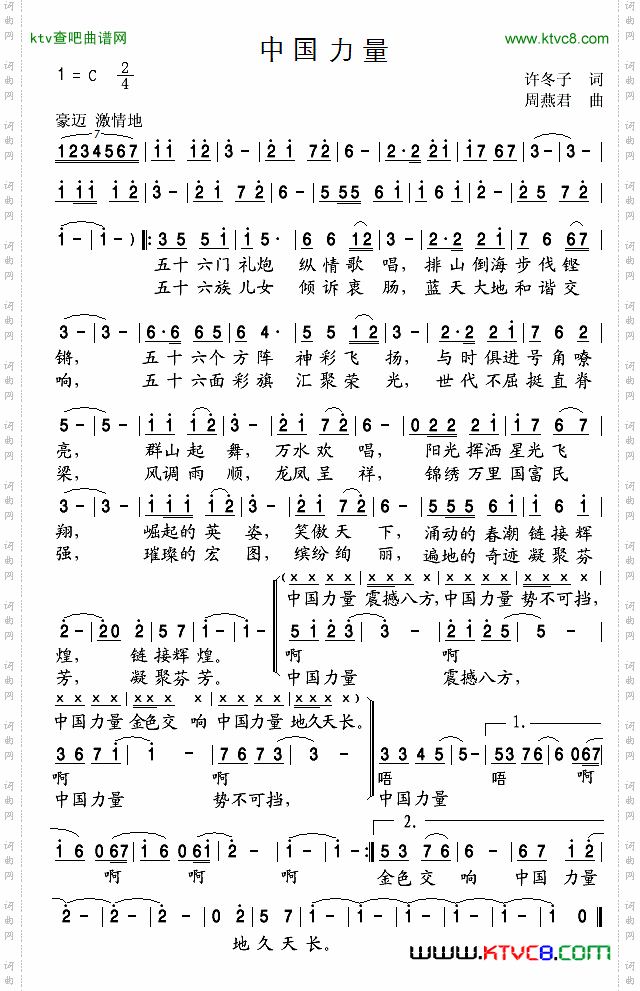 ktv查吧曲谱网
中国力量
www.ktvc8.com
1 = C 2/4
许冬子 词
周燕君 曲
豪迈 激情地
7
1234567 | i i i 2 | 3 - | 2 i 7 2 | 6 - | 2·2 2 i | i 7 6 7 | 3 - | 3 - |
i i i i 2 | 3 - | 2 i 7 2 | 6 - | 5 5 5 6 i | i 6 i | 2 - | 2 5 7 2 |
i - | i - ) ‖: 3 5 5 i | i 5· | 6 6 i 2 | 3 - | 2·2 2 i | 7 6 6 7 |
五十六门礼炮 纵情歌 唱, 排山倒海步伐铿
五十六族儿女 倾诉衷 肠, 蓝天大地和谐交
3 - | 3 - | 6·6 6 5 | 6 4· | 5 5 i 2 | 3 - | 2·2 2 i | 7 6 2 |
锵, 五十六个方阵 神彩飞 扬, 与时俱进号角嘹
响, 五十六面彩旗 汇聚荣 光, 世代不屈挺直脊
5 - | 5 - | i i i 2 | 3 - | 2 i 7 2 | 6 - | 0 2 2 2 i | i 7 6 7 |
亮, 群山起 舞, 万水欢 唱, 阳光挥洒星光飞
梁, 风调雨 顺, 龙凤呈 祥, 锦绣万里国富民
3 - | 3 - | i i i i 2 | 3 - | 2 i 7 2 | 6 - | 5 5 5 6 i | i 6 i |
翔, 崛起的英 姿, 笑傲天 下, 涌动的春潮链接辉
强, 璀璨的宏 图, 缤纷绚 丽, 遍地的奇迹凝聚芬
( x x x x | x x x x | x x x x | x x x x
中国力量 震撼八方,中国力量 势不可挡,
2 - | 2 0 | 2 2 | 5 7 | i - | i - | 5 i 2 3 | 3 - | 2 i 2 5 | 5 - |
煌, 链接辉煌。 啊 啊
芳, 凝聚芬芳。 中国力量 震撼八方,
x x x x | x x x x | x x x x | x x x x )
中国力量金色交 响 中国力量地久天长。
1.
3 6 7 i | i - | 7 6 7 3 | 3 - | 3 3 4 5 | 5 - | 5 3 7 6 | 6 0 6 7 |
啊 啊 唔 唔 啊
中国力量 势不可挡, 中国力量
2.
i 6 0 6 7 | i 6 0 6 i | 2 - | i - | i - :‖ 5 3 7 6 | 6 - | 6 7 i 2 |
啊 啊 啊 金色交 响 中国 力量
2 - | 2 - | 0 2 | 5 7 | i - | i - | i - | i - | i 0 ‖
地久天长。
www.KTVC8.com
词曲网